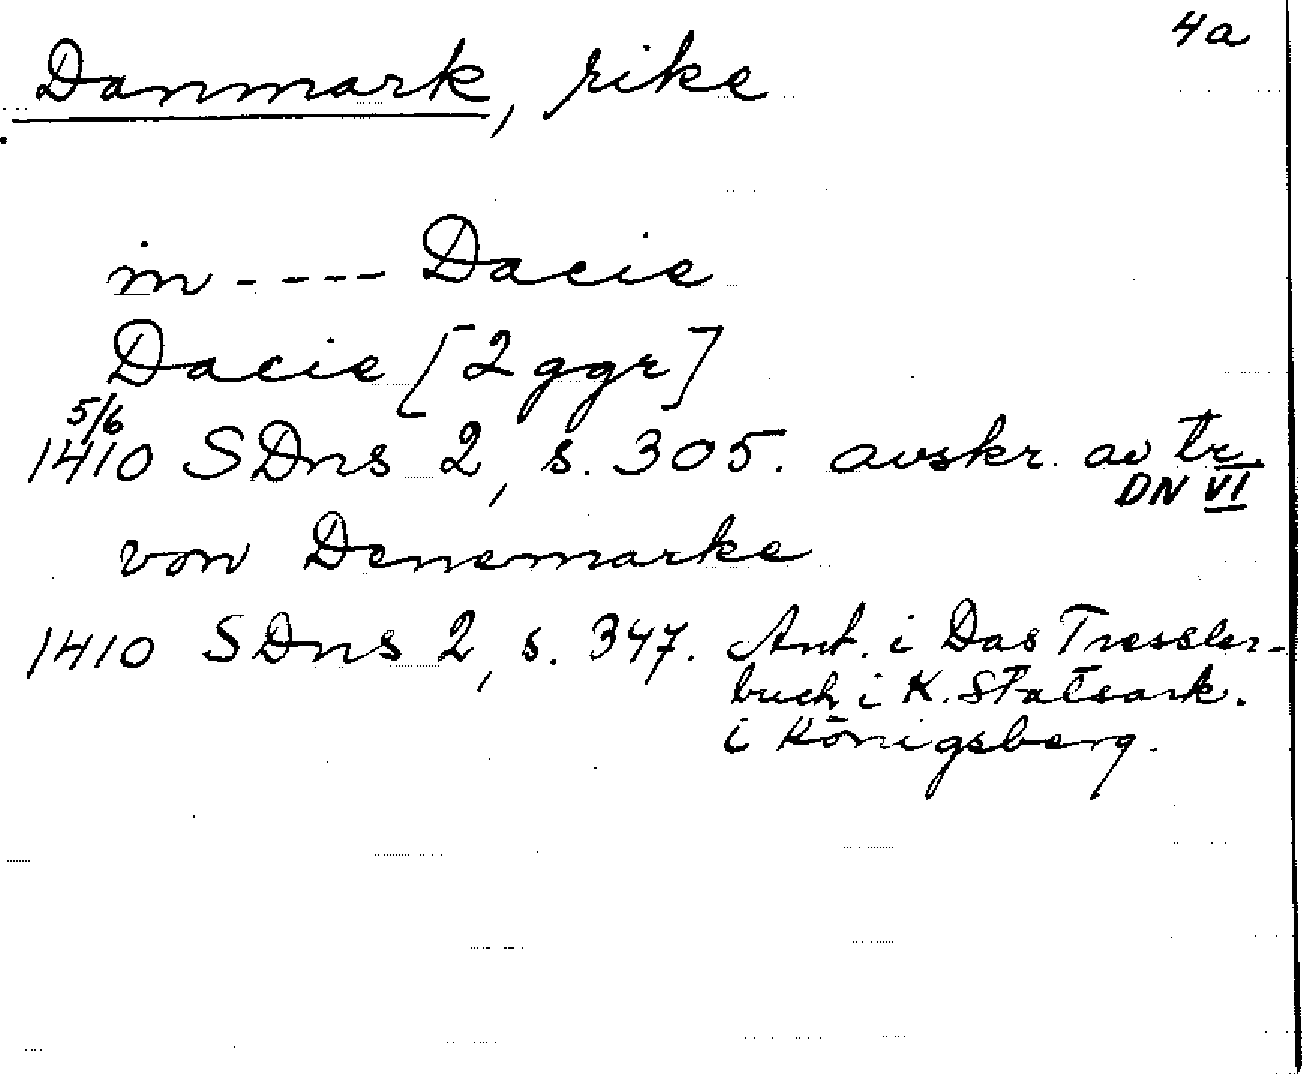 4a
Danmark, rike
in - - - - Dacie
Dacie [2 ggr]
5/6
1410 SDns 2, s. 305. avskr. av tr.
DN VI
von Denemarke
1410 SDns 2, s. 347. Ant. i Das Tressler-
buch i K. Statsark.
i Königsberg.